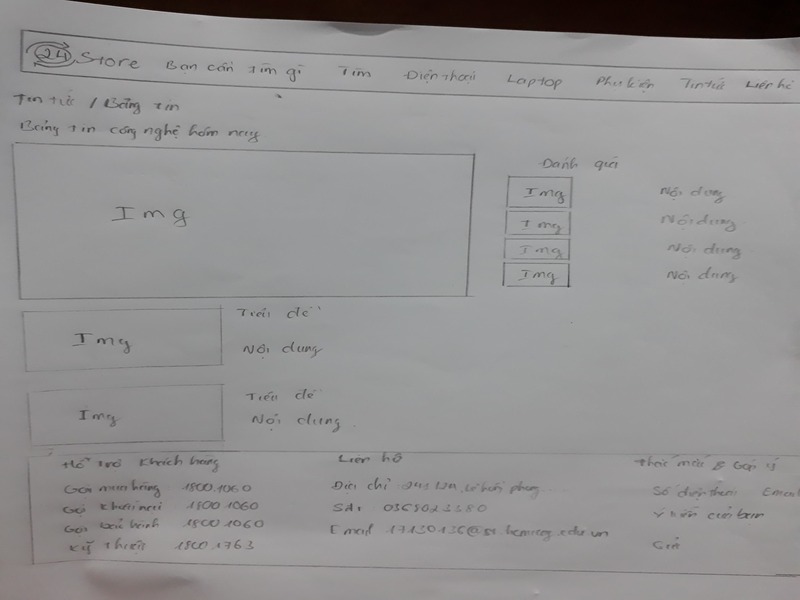 24 Store Bạn cần tìm gì Tìm Điện thoại Laptop Phụ kiện Tin tức Liên hệ
Tin tức / Bảng tin
Bảng tin công nghệ hôm nay
Img
Đánh giá
Img Nội dung
Img Nội dung
Img Nội dung
Img Nội dung
Img
Tiêu đề
Nội dung
Img
Tiêu đề
Nội dung
Hỗ trợ khách hàng
Gọi mua hàng 1800.1060
Gọi khiếu nại 1800.1060
Gọi bảo hành 1800.1060
Kỹ thuật 1800.1763
Liên hệ
Địa chỉ
Email
Thắc mắc & Góp ý
Số điện thoại Email
Ý kiến của bạn
Gửi